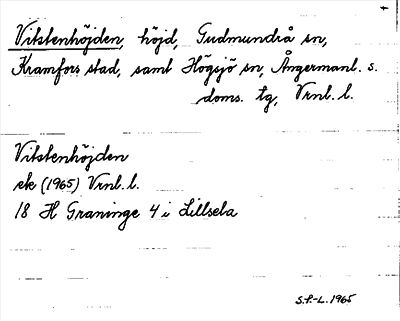 Vitstenhöjden, höjd, Gudmundrå sn,
Kramfors stad, samt Högsjö sn, Ångermanl. s.
doms. tg, Vrnl. l.
Vitstenhöjden
ek (1965) Vrnl. l.
18 H Graninge 4 i Lillsela
S.F.-L. 1965